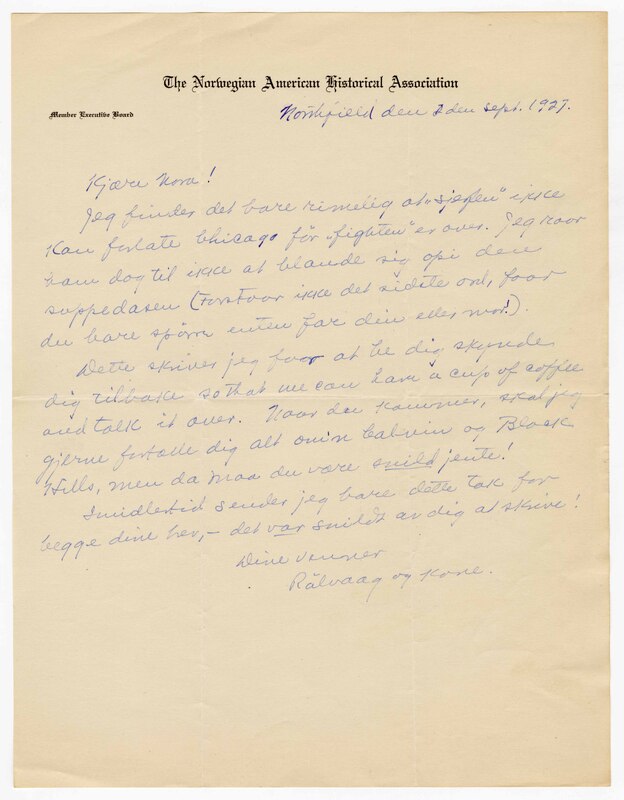 The Norwegian American Historical Association
Member Executive Board
Northfield den 2den Sept. 1927.
Kjære Nora!
Jeg finder det bare rimelig at „sjefen" ikke
kan forlate Chicago før „fighten" er over. Jeg
ham dog til ikke at blande sig opi den
suppedasen (forstaar ikke det sidste ord, faar
du bare spørre enten far din eller mor!).
Dette skriver jeg for at be dig skynde
dig tilbake so that we can have a cup of coffee
and talk it over. Naar du kommer, skal jeg
gjerne fortælle dig alt om Calvin og Black
Hills, men da maa du være snild jente!
Imidlertid sender jeg bare dette tak for
begge dine brev, – det var snildt av dig at skrive!
Dine venner
Rølvaag og Kone.